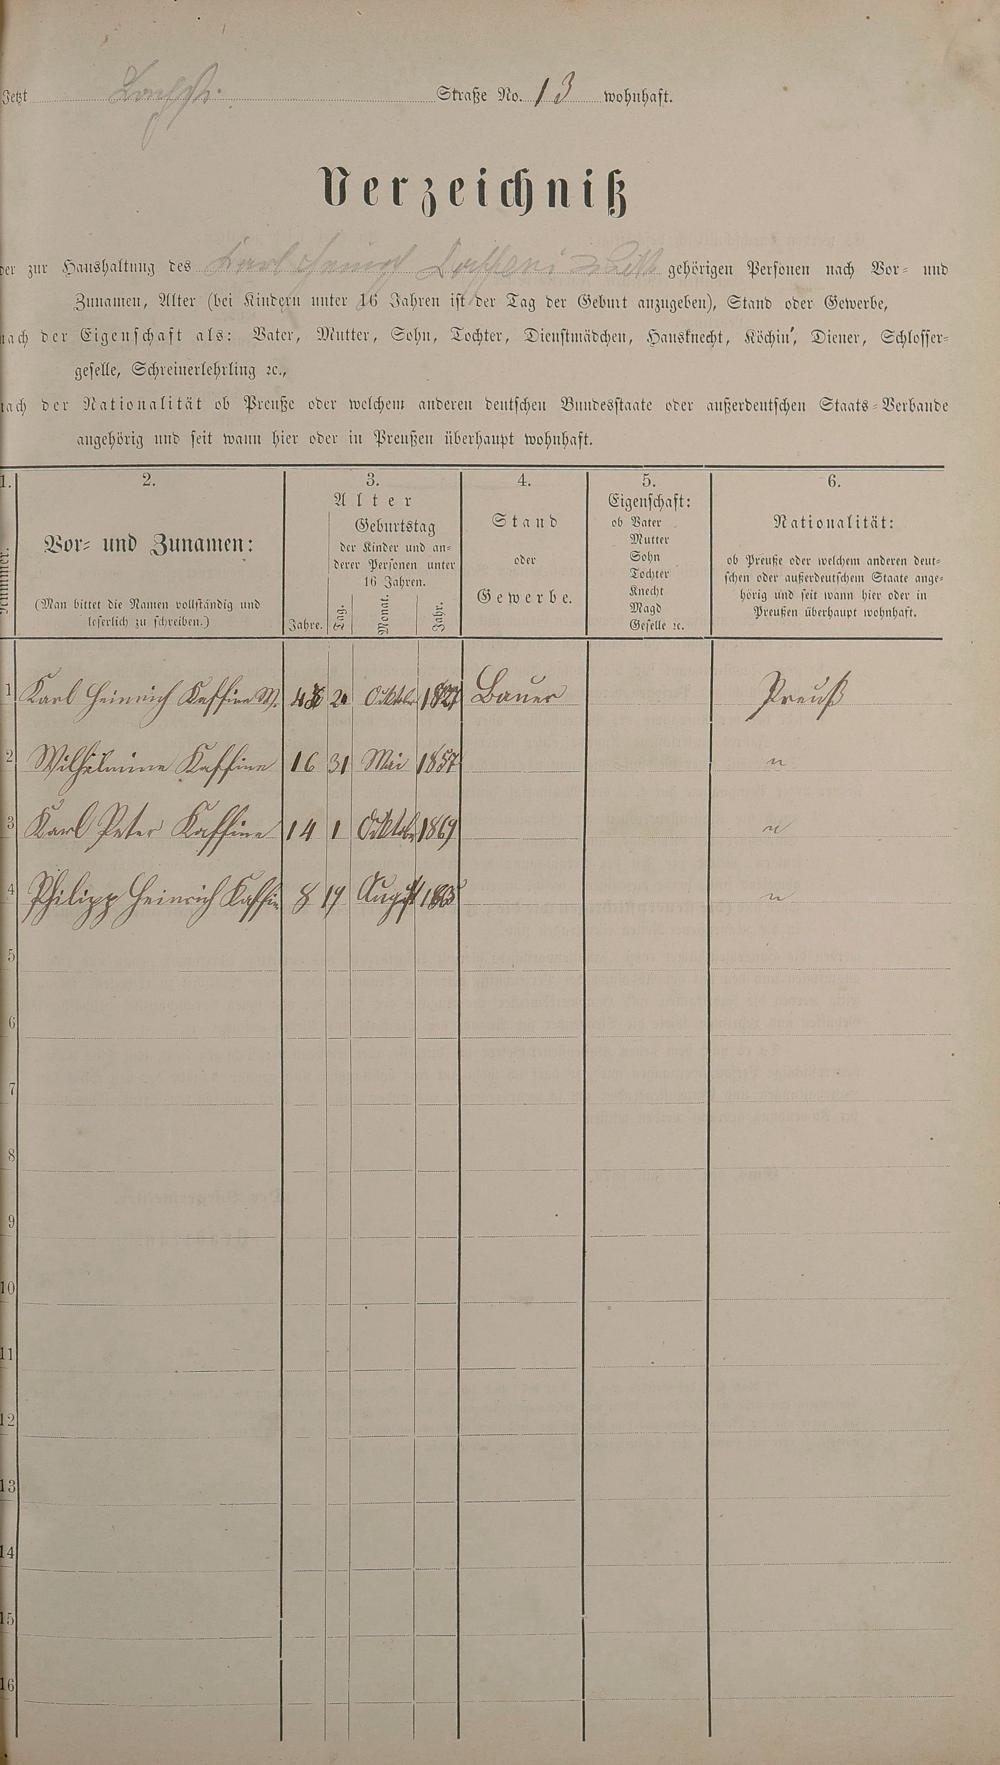 Jetzt Straße No. 13 wohnhaft.
Verzeichniß
der zur Haushaltung des Karl Heinrich Wittw. gehörigen Personen nach Vor- und
Zunamen, Alter (bei Kindern unter 16 Jahren ist der Tag der Geburt anzugeben), Stand oder Gewerbe,
nach der Eigenschaft als: Vater, Mutter, Sohn, Tochter, Dienstmädchen, Hausknecht, Köchin, Diener, Schlosser-
geselle, Schreinerlehrling ꝛc.,
nach der Nationalität ob Preuße oder welchem anderen deutschen Bundesstaate oder außerdeutschen Staats-Verbande
angehörig und seit wann hier oder in Preußen überhaupt wohnhaft.
1. 2. 3. 4. 5. 6.
Nummer.
Vor- und Zunamen:
(Man bittet die Namen vollständig und
leserlich zu schreiben.)
Alter
Jahre.
Geburtstag
der Kinder und an-
derer Personen unter
16 Jahren.
Tag. Monat. Jahr.
Stand
oder
Gewerbe.
Eigenschaft:
ob Vater
Mutter
Sohn
Tochter
Knecht
Magd
Geselle ꝛc.
Nationalität:
ob Preuße oder welchem anderen deut-
schen oder außerdeutschem Staate ange-
hörig und seit wann hier oder in
Preußen überhaupt wohnhaft.
1 Karl Heinrich Kaffine W. Oktober 1827 Bauer Preuß
2 Wilhelmine Kaffine 16 31 Mai 1857 "
3 Karl Peter Kaffine 14 1 Oktober 1869 "
4 Philipp Heinrich Kaffin 8 17 August "
5
6
7
8
9
10
11
12
13
14
15
16